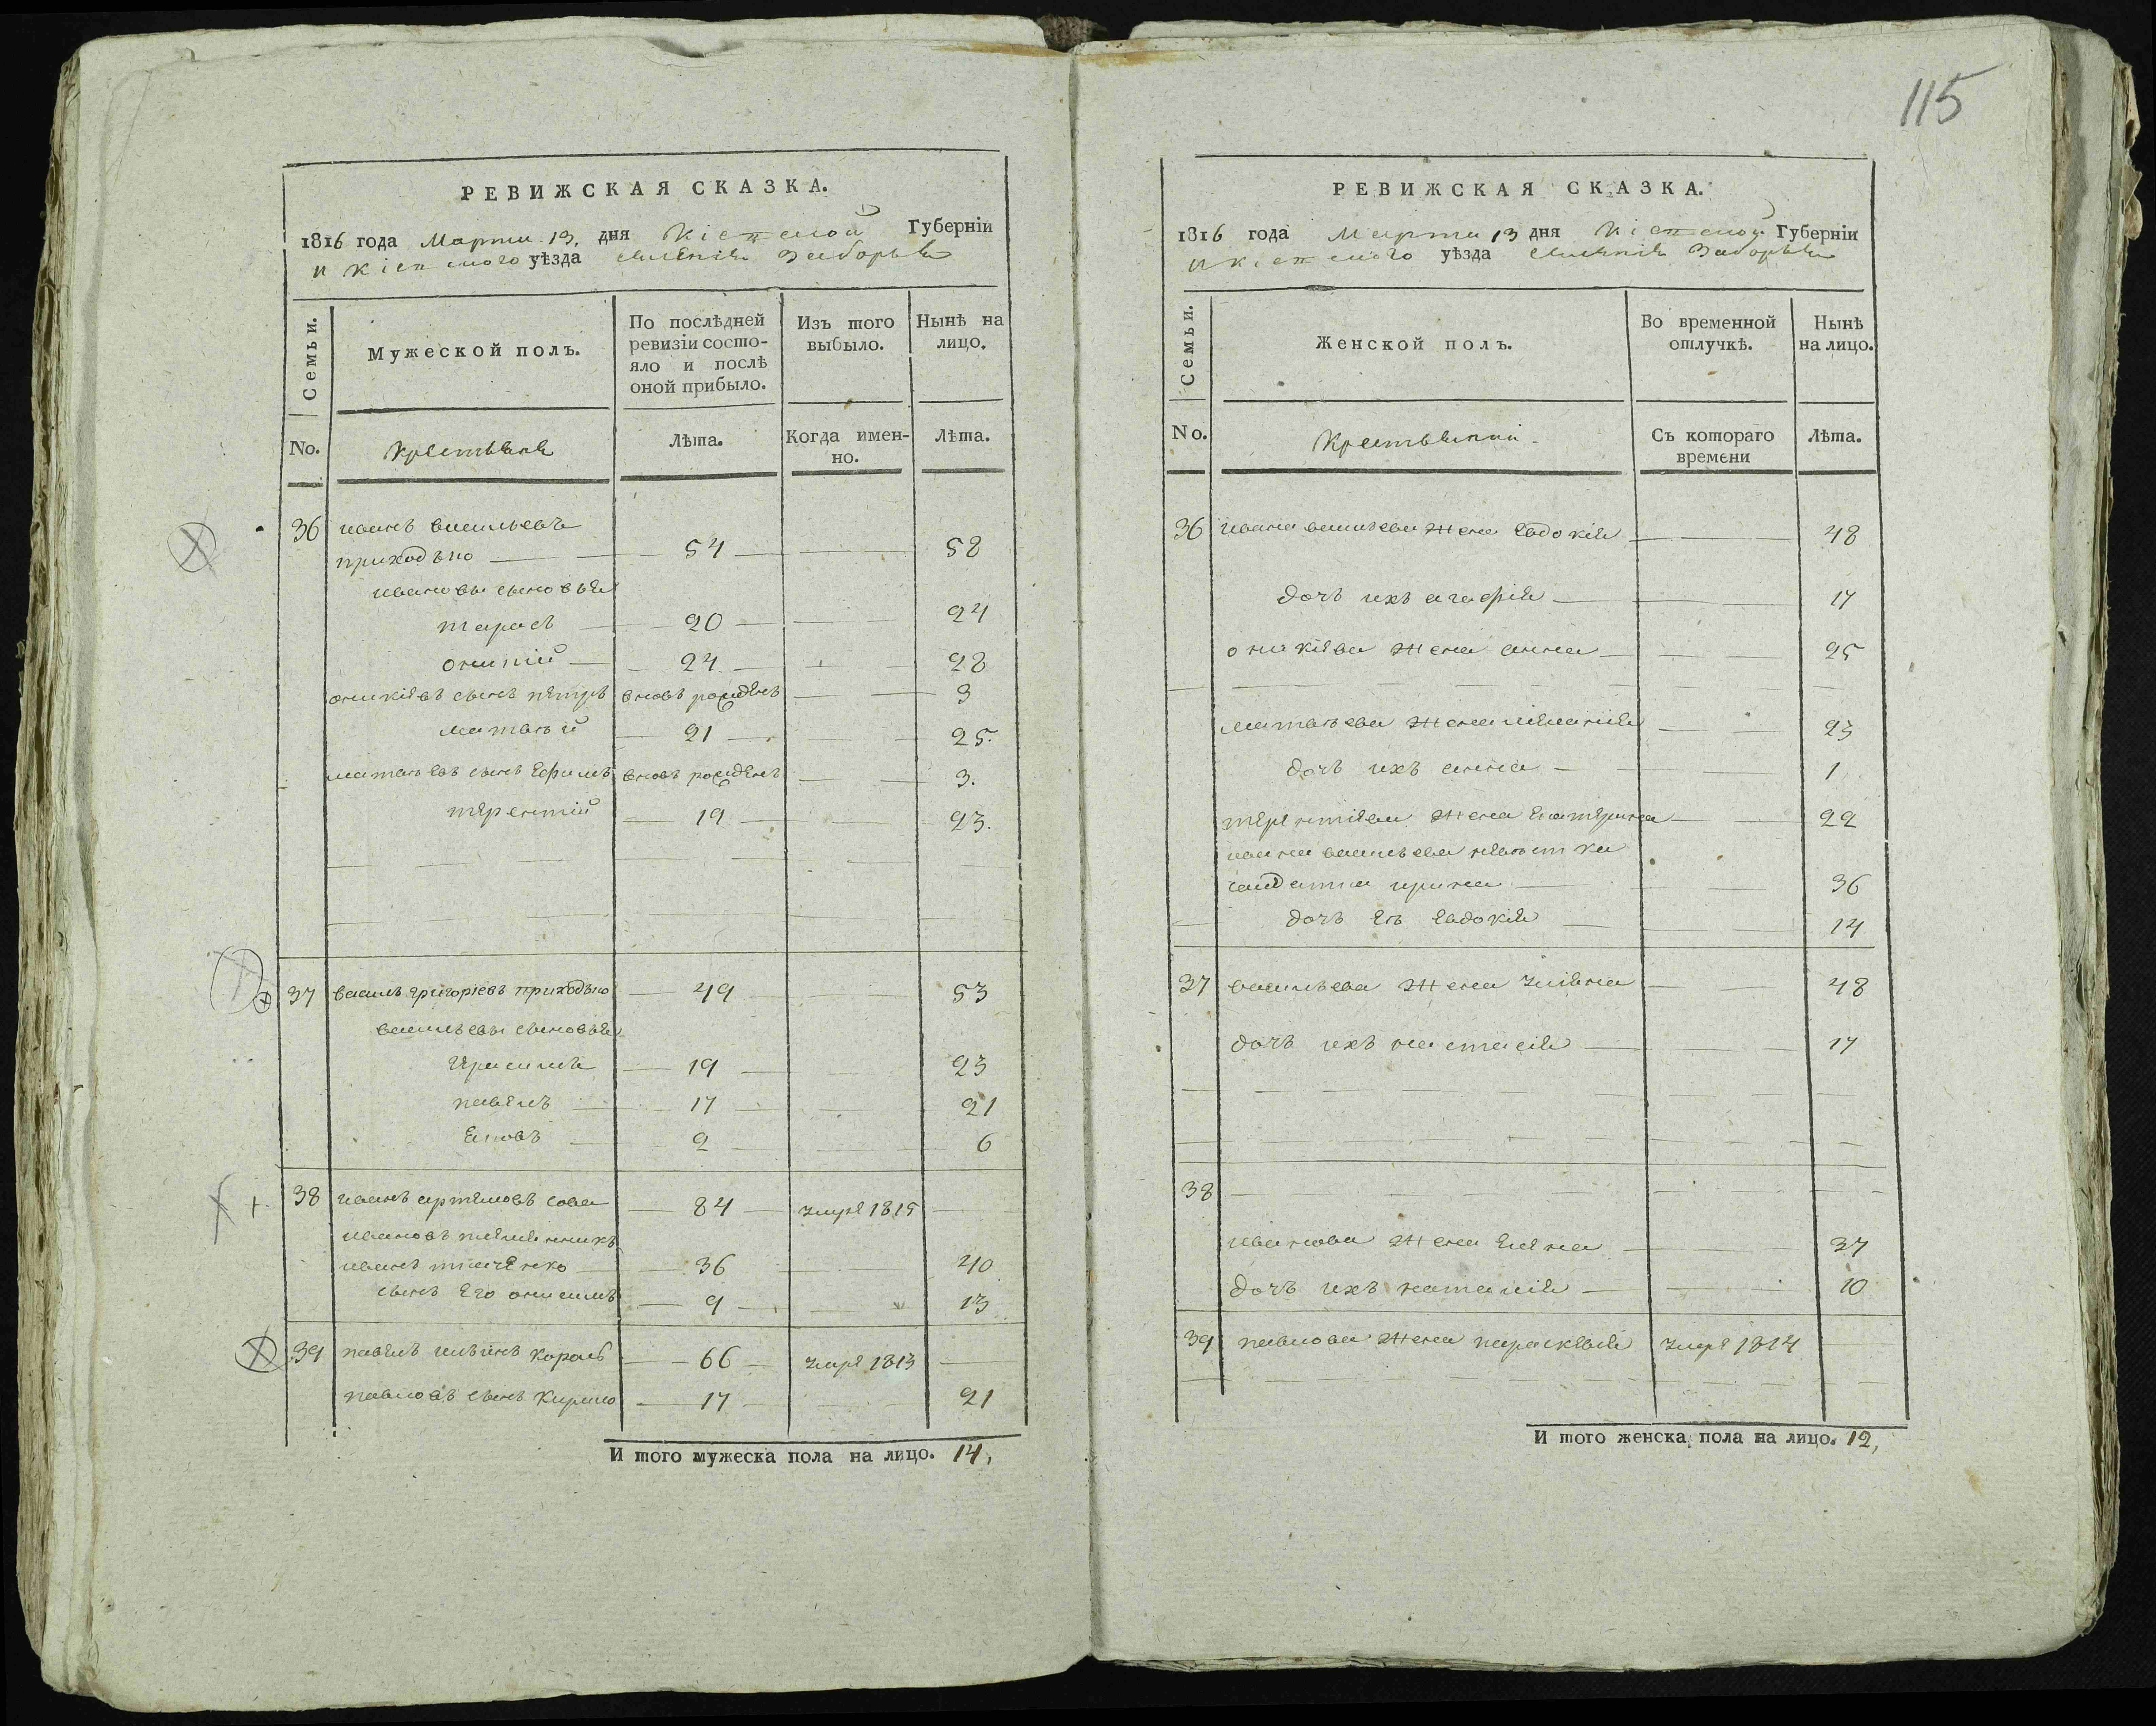 115
РЕВИЖСКАЯ СКАЗКА.
1816 года Марта 13, дня Кіевской Губерніи
и Кіевского уѣзда селенія Заборья
Семьи. Мужеской полъ. По послѣдней ревизіи состояло и послѣ оной прибыло. Изъ того выбыло. Нынѣ на лицо.
No. Крестьяня Лѣта. Когда именно. Лѣта.
36 иванъ васильевъ
приходько 54 58
ивановы сыновья
тарасъ 20 24
24 28
сынъ петръ вновь рожденъ 3
матвей 21 25.
матвеевъ сынъ Ефимъ вновь рожденъ 3.
терентій 19 23.
37 василь григорьевъ приходько 49 53
васильевы сыновья
19 23
павелъ 17 21
2 6
38 иванъ артемовъ сова 84 умре 1815
ивановъ племянникъ
иванъ ткаченко 36 40
сынъ Его онисимъ 9 13
39 павелъ ильинъ король 66 умре 1813
павловъ сынъ Кирило 17 21
И того мужеска пола на лицо. 14,
РЕВИЖСКАЯ СКАЗКА.
1816 года Марта 13 дня Кіевской Губерніи
и Кіевского уѣзда селенія Заборья
Семьи. Женской полъ. Во временной отлучкѣ. Нынѣ на лицо.
No. Крестьянки Съ котораго времени Лѣта.
36 ивана васильева жена Евдокія 48
дочь ихъ агафія 17
жена анна 25
матвеева жена меланія 23
дочь ихъ анна 1
терентіева жена Екатерина 22
ивана васильева невестка
салдатка ирина 36
дочь Ея Евдокія 14
37 васильева жена уліяна 48
дочь ихъ настасія 17
38
иванова жена Елена 37
дочь ихъ наталія 10
39 павлова жена параскевія умре 1814
И того женска пола на лицо. 12,